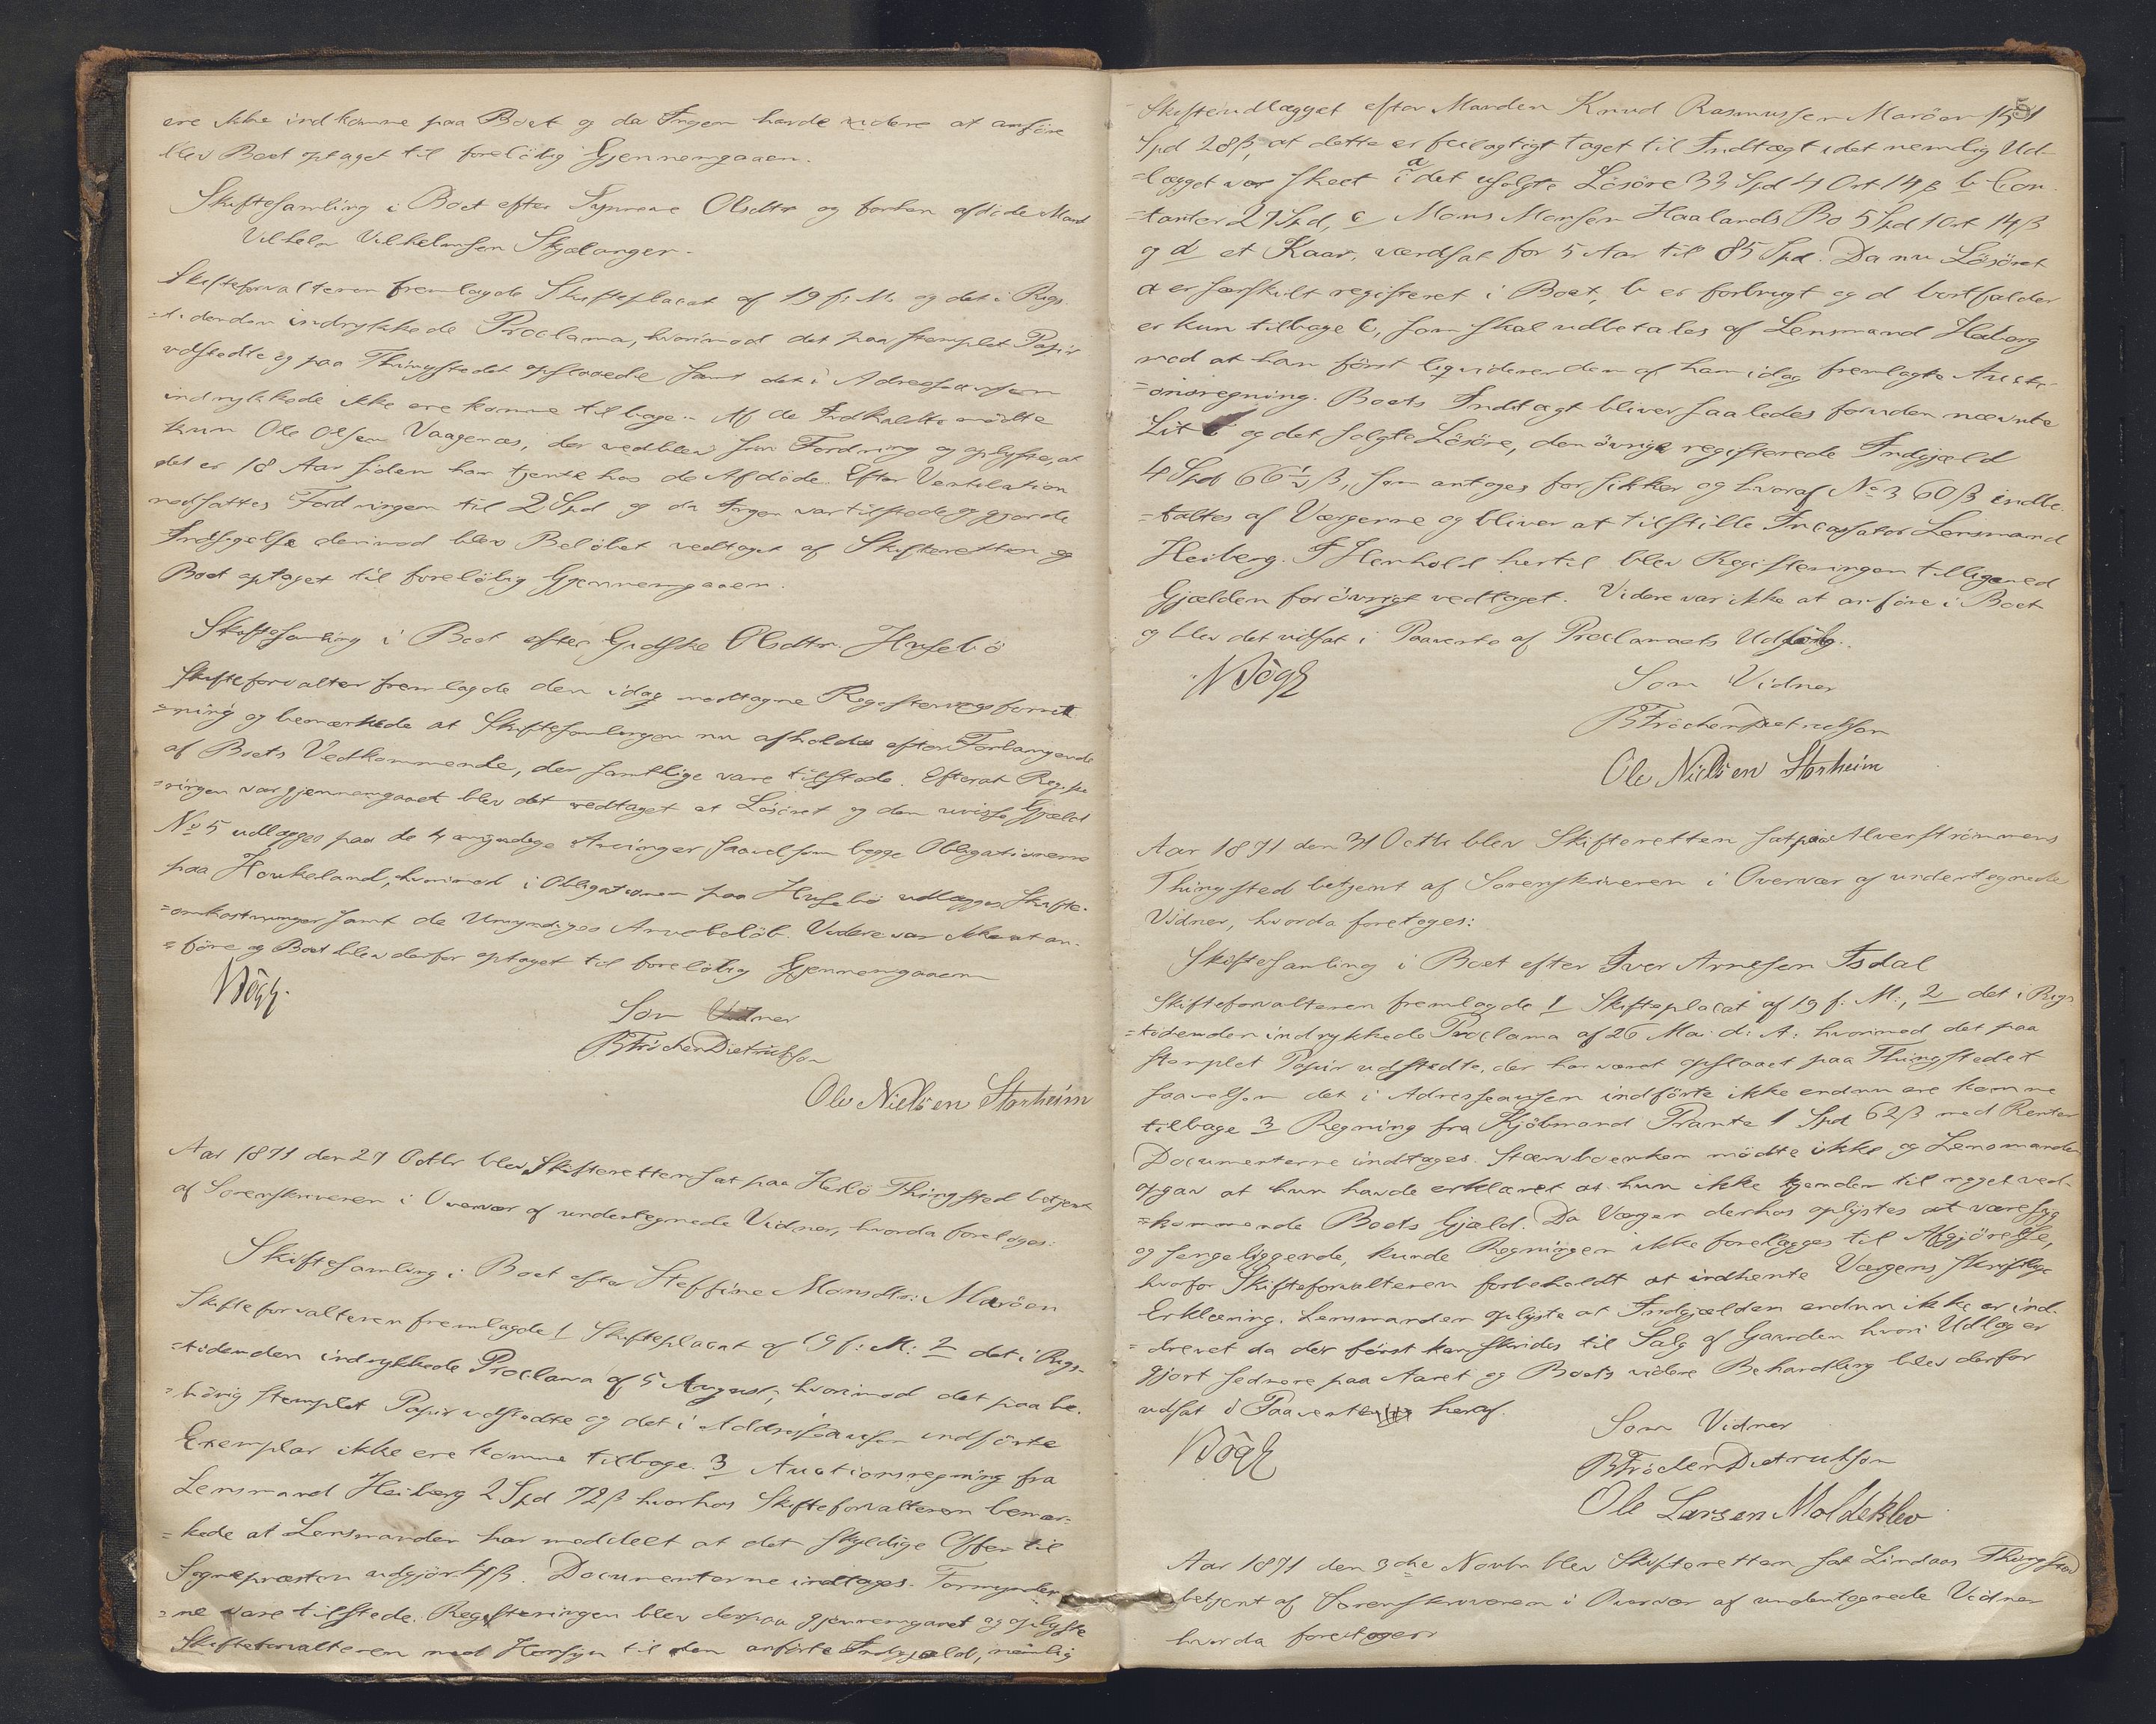 ere ikke indkomne paa Boet og da Ingen havde videre at anføre
blev Boet optaget til foreløbig Gjennemgaaen.
Skiftesamling i Boet efter Synneve Olsdtr og forhen afdøde Mand
Vilhelm Vilhelmsen Skjelanger.
Skifteforvalteren fremlagde Skifteplacat af 19 f: M. og det i Rigs-
=tidenden indrykkede Proclama, hvorimod det paa stemplet Papir
udstedte og paa Thingstedet opslaaede samt det i Adresseavisen
indrykkede ikke ere komne tilbage. Af de Indkaldte mødte
kun Ole Olsen Vaagenæs, der vedblev sin Fordring og oplyste, at
det er 18 Aar siden han tjente hos de Afdøde. Efter Ventilation
nedsattes Fordringen til 2 Spd og da Ingen var tilstede og gjorde
Indsigelse derimod blev Beløbet vedtaget af Skifteretten og
Boet optaget til foreløbig Gjennemgaaen.
Skiftesamling i Boet efter Gidske Olsdtr. Husebø
Skifteforvalter fremlagde den idag modtagne Registeringsforret
=ning og bemærkede at Skiftesamlingen nu afholdes efter Forlangende
af Boets Vedkommende, der samtlige vare tilstede. Efterat Registe
=ringen var gjennemgaaet blev det vedtaget at Løsøret og den uvisse Gjæld
No 5 udlægges paa de 4 myndige Arvinger, saavelsom begge Obligationerne
paa Houkeland, hvorimod i Obligationen paa Husebø udlægges Skifte-
=omkostninger samt de Umyndiges Arvebeløb. Videre var ikke at an-
=føre og Boet blev derfor optaget til foreløbig Gjennemgaaen
NBøgh.
Som Vidner
BTröchenDietrichson
Ole Nielsen Storheim
Aar 1871 den 27 Octbr blev Skifteretten sat paa Herlø Thingsted betjent
af Sorenskriveren i Overvær af undertegnede Vidner, hvorda foretoges:
Skiftesamling i Boet efter Steffine Monsdtr: Marøen
Skifteforvalteren fremlagde 1 Skifteplacat af 19 f: M: 2 det i Rigs-
=tidenden indrykkede Proclama af 5 August, hvorimod det paa be-
=hørig stemplet Papir udstedte og det i Addresseavisen indførte
Exemplar ikke ere komne tilbage. 3 Auctionsregning fra
Lensmand Heiberg 2 Spd 72 ß hvorhos Skifteforvalteren bemær-
=kede at Lensmanden har meddelt at det skyldige Offer til
Sognepræsten udgjør ß. Documenterne indtages. Formynder
=ne vare tilstede. Registeringen blev derpaa gjennemgaaet og oplyste
Skifteforvalteren med Hensyn til den anførte Indgjæld, nemlig
Skifteudlægget efter Manden Knud Rasmussen Marøen
Spd 28 ß, at dette er feilagtigt taget til Indtægt idet nemlig Ud-
=lægget var skeet i a det usolgte Løsøre 33 Spd 4 Ort 14 ß b Con-
=tanter 27 Spd, c Mons Monsen Haalands Bo 5 Spd 1 Ort 14 ß
og d et Kaar, værdsat for 5 Aar til 85 Spd. Da nu Løsøret
a er særskilt registeret i Boet, b er forbrugt og d bortfalder
er kun tilbage c, som skal udbetales af Lensmand Heiberg
ved at han først liqviderer den af ham idag fremlagte Aucti-
=onsregning. Boets Indtægt bliver saaledes foruden nævnte
Lit c og det solgte Løsøre, den øvrige registerede Indgjæld
4 Spd 66½ ß, som antages for sikker og hvoraf No 3 60 ß indbe-
=taltes af Værgerne og bliver at tilstille Incassator Lensmand
Heiberg. I Henhold hertil blev Registeringen tilligemed
Gjælden forøvrigt vedtaget. Videre var ikke at anføre i Boet
og blev det udsat i Paavente af Proclamaets Udløb.
NBøgh
Som Vidner
BTröchenDietrichson
Ole Nielsen Storheim
Aar 1871 den 31 Octbr blev Skifteretten sat paa Alverstrømmens
Thingsted betjent af Sorenskriveren i Overvær af undertegnede
Vidner, hvorda foretoges:
Skiftesamling i Boet efter Iver Arnesen Isdal
Skifteforvalteren fremlagde 1 Skifteplacat af 19 f: M:, 2 det i Rigs
=tidenden indrykkede Proclama af 26 Mai d: A: hvorimod det paa
stemplet Papir udstedte, der har været opslaaet paa Thingstedet
saavelsom det i Adresseavisen indførte ikke endnu ere komne
tilbage 3 Regning fra Kjøbmand Prante 1 Spd 62 ß med Renter
Documenterne indtages. Stervboenken mødte ikke og Lensmanden
opgav at hun havde erklæret at hun ikke kjender til noget ved-
=kommende Boets Gjæld. Da Værgen derhos oplystes at være syg
og sengeliggende, kunde Regningen ikke forelægges til Afgjørelse,
hvorfor Skifteforvalteren forbeholdt at indhente Værgens skriftlige
Erklæring. Lensmanden oplyste at Indgjælden endnu ikke er ind-
=drevet da der først kan skrides til Salg af Gaarden hvori Udlæg er
gjort sednere paa Aaret og Boets videre Behandling blev derfor
udsat i Paavente heraf.
NBøgh
Som Vidner
BTröchenDietrichson
Ole Larsen Moldeklev
Aar 1871 den 3die Novbr blev Skifteretten sat Lindaas Thingsted
betjent af Sorenskriveren i Overvær af undertegnede Vidner
hvorda foretoges